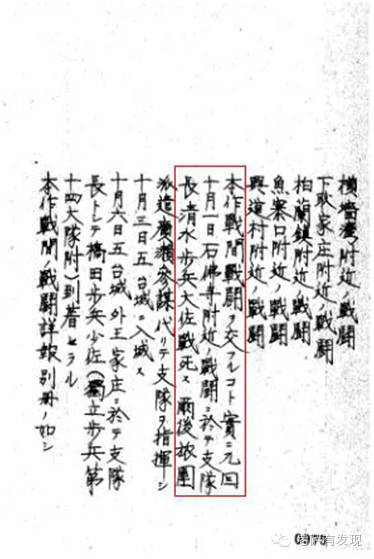 附近ノ戰闘
下取家庄附近ノ戰闘
柏蘭鎮附近ノ戰闘
魚寨口附近ノ戰闘
興道村附近ノ戰闘
本作戰間戰闘ヲ交フルコト實ニ九回
十月一日石佛寺附近ノ戰闘ニ於テ支隊
長清水歩兵大佐戰死ス爾後旅團
派遣廣瀬參謀代リテ支隊ヲ指揮シ
十月三日五台城ニ入城ス
十月六日五台城外王家庄ニ於テ支隊
長トシテ橋田歩兵少佐(獨立歩兵第
十四大隊附)到着セラル
本作戰間ノ戰闘詳報別冊ノ如シ
有发现